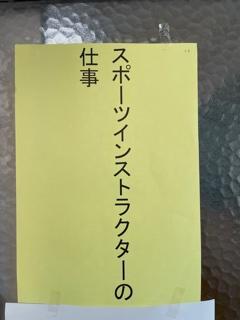 スポーツインストラクターの
仕事